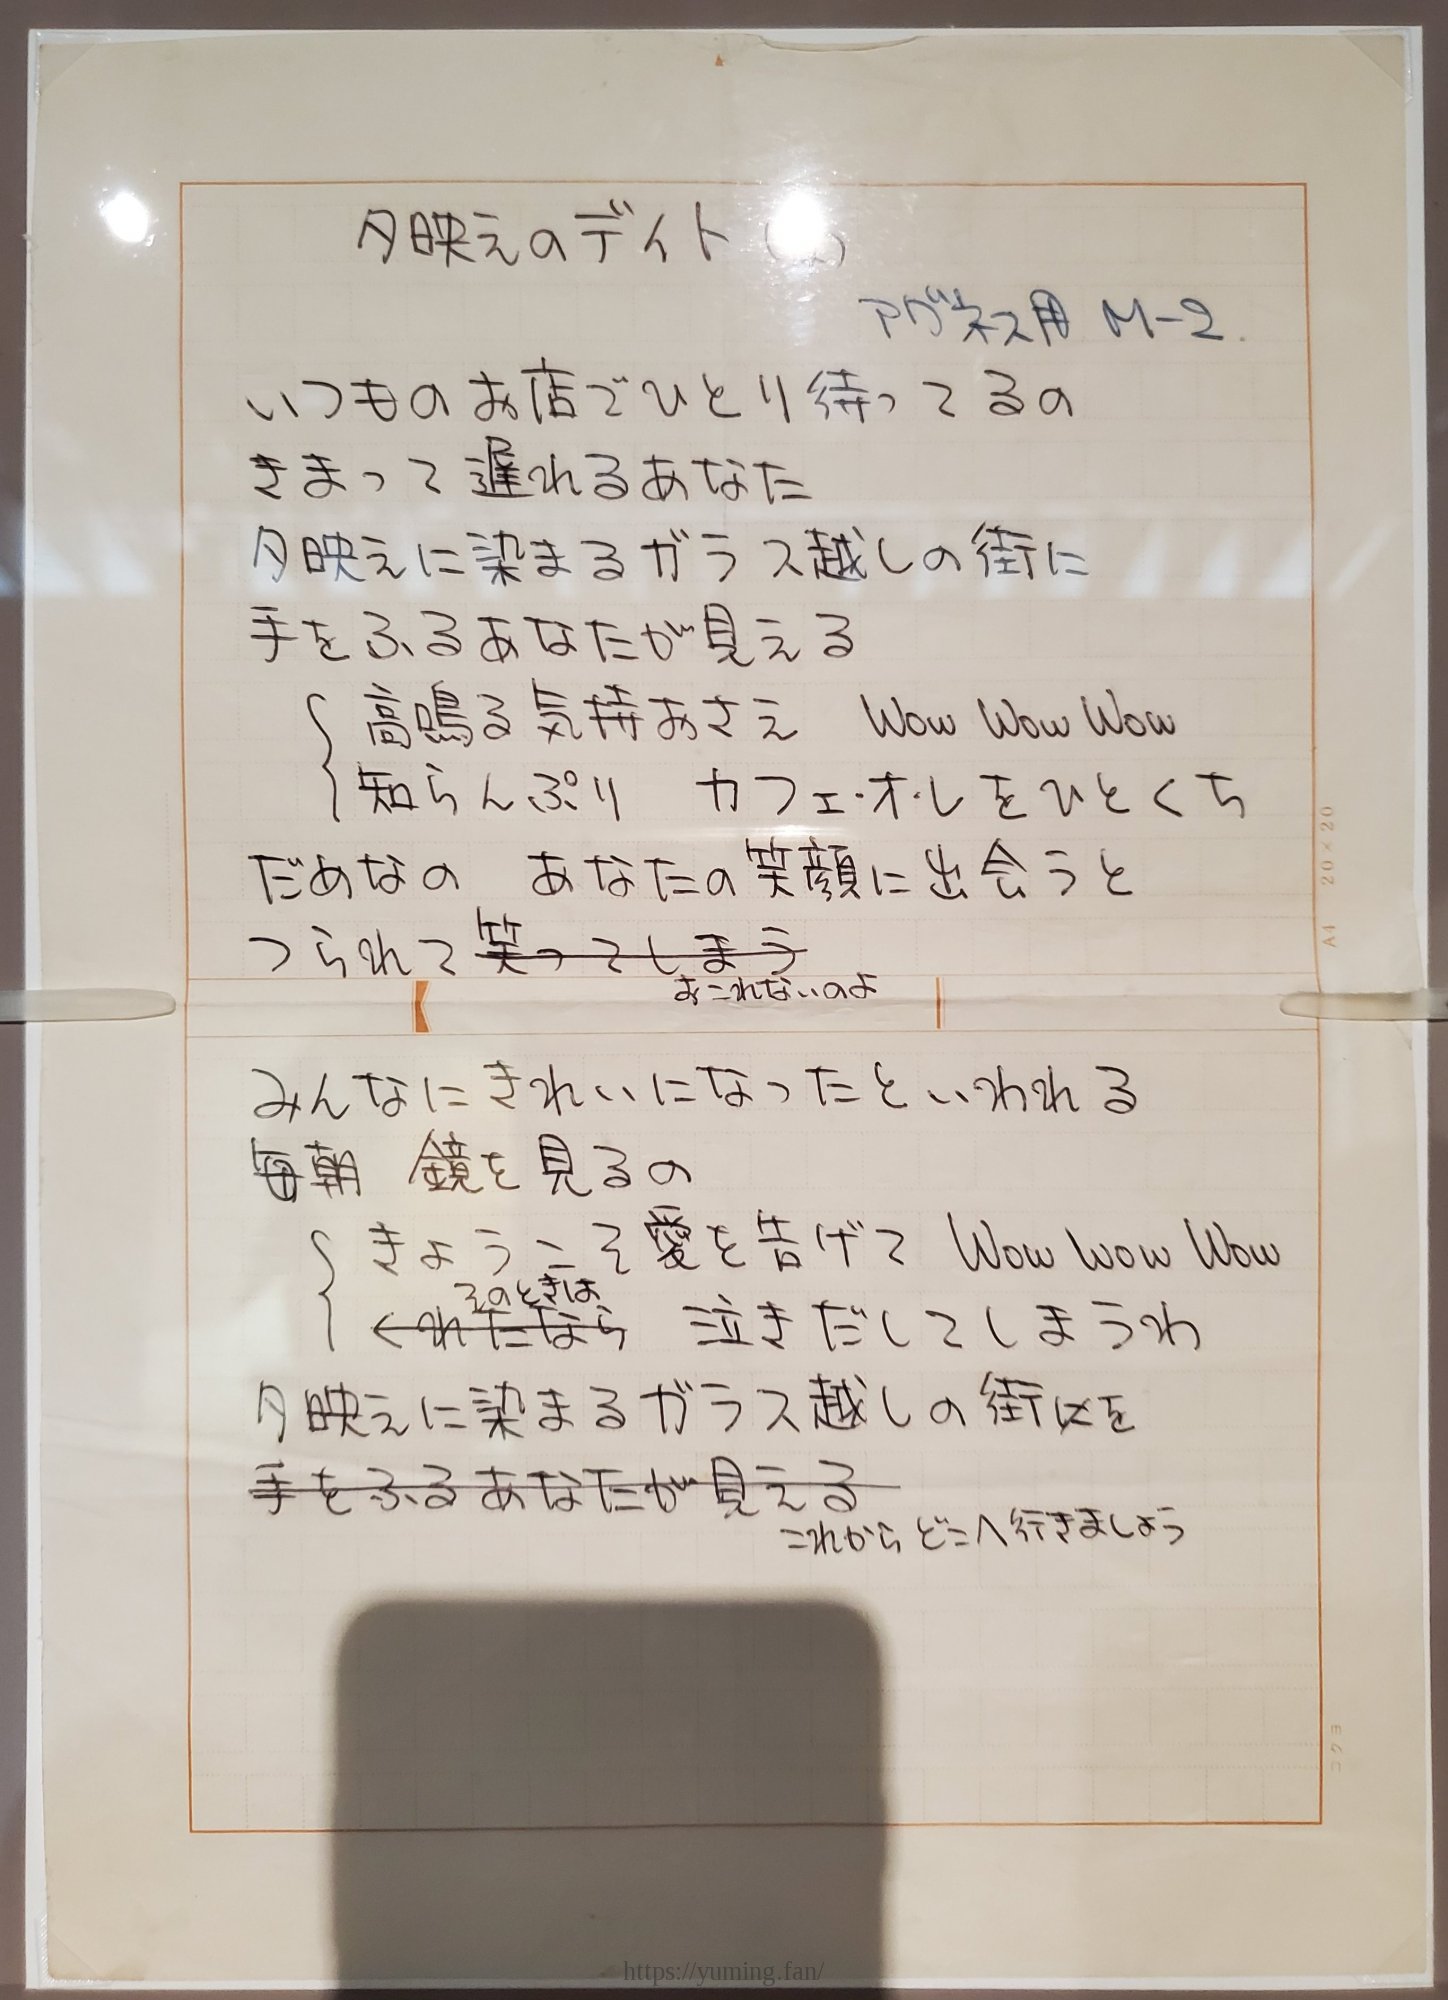 夕映えのデイト
アグネス用 M-2.
いつものお店でひとり待ってるの
きまって遅れるあなた
夕映えに染まるガラス越しの街に
手をふるあなたが見える
高鳴る気持おさえ Wow Wow Wow
知らんぷり カフェ・オ・レをひとくち
だめなの あなたの笑顔に出会うと
つられて笑ってしまう
おこれないのよ
みんなにきれいになったといわれる
毎朝 鏡を見るの
きょうこそ愛を告げて Wow Wow Wow
そのときは
くれたなら 泣きだしてしまうわ
夕映えに染まるガラス越しの街にを
手をふるあなたが見える
これからどこへ行きましょう
A4 20×20
コクヨ
https://yuming.fan/